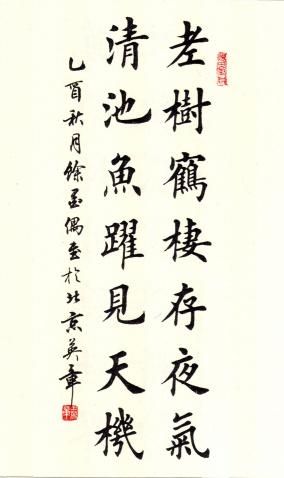 老樹窩棲存夜氣
清池魚躍見天機
乙酉秋月餘墨偶書於北京英章